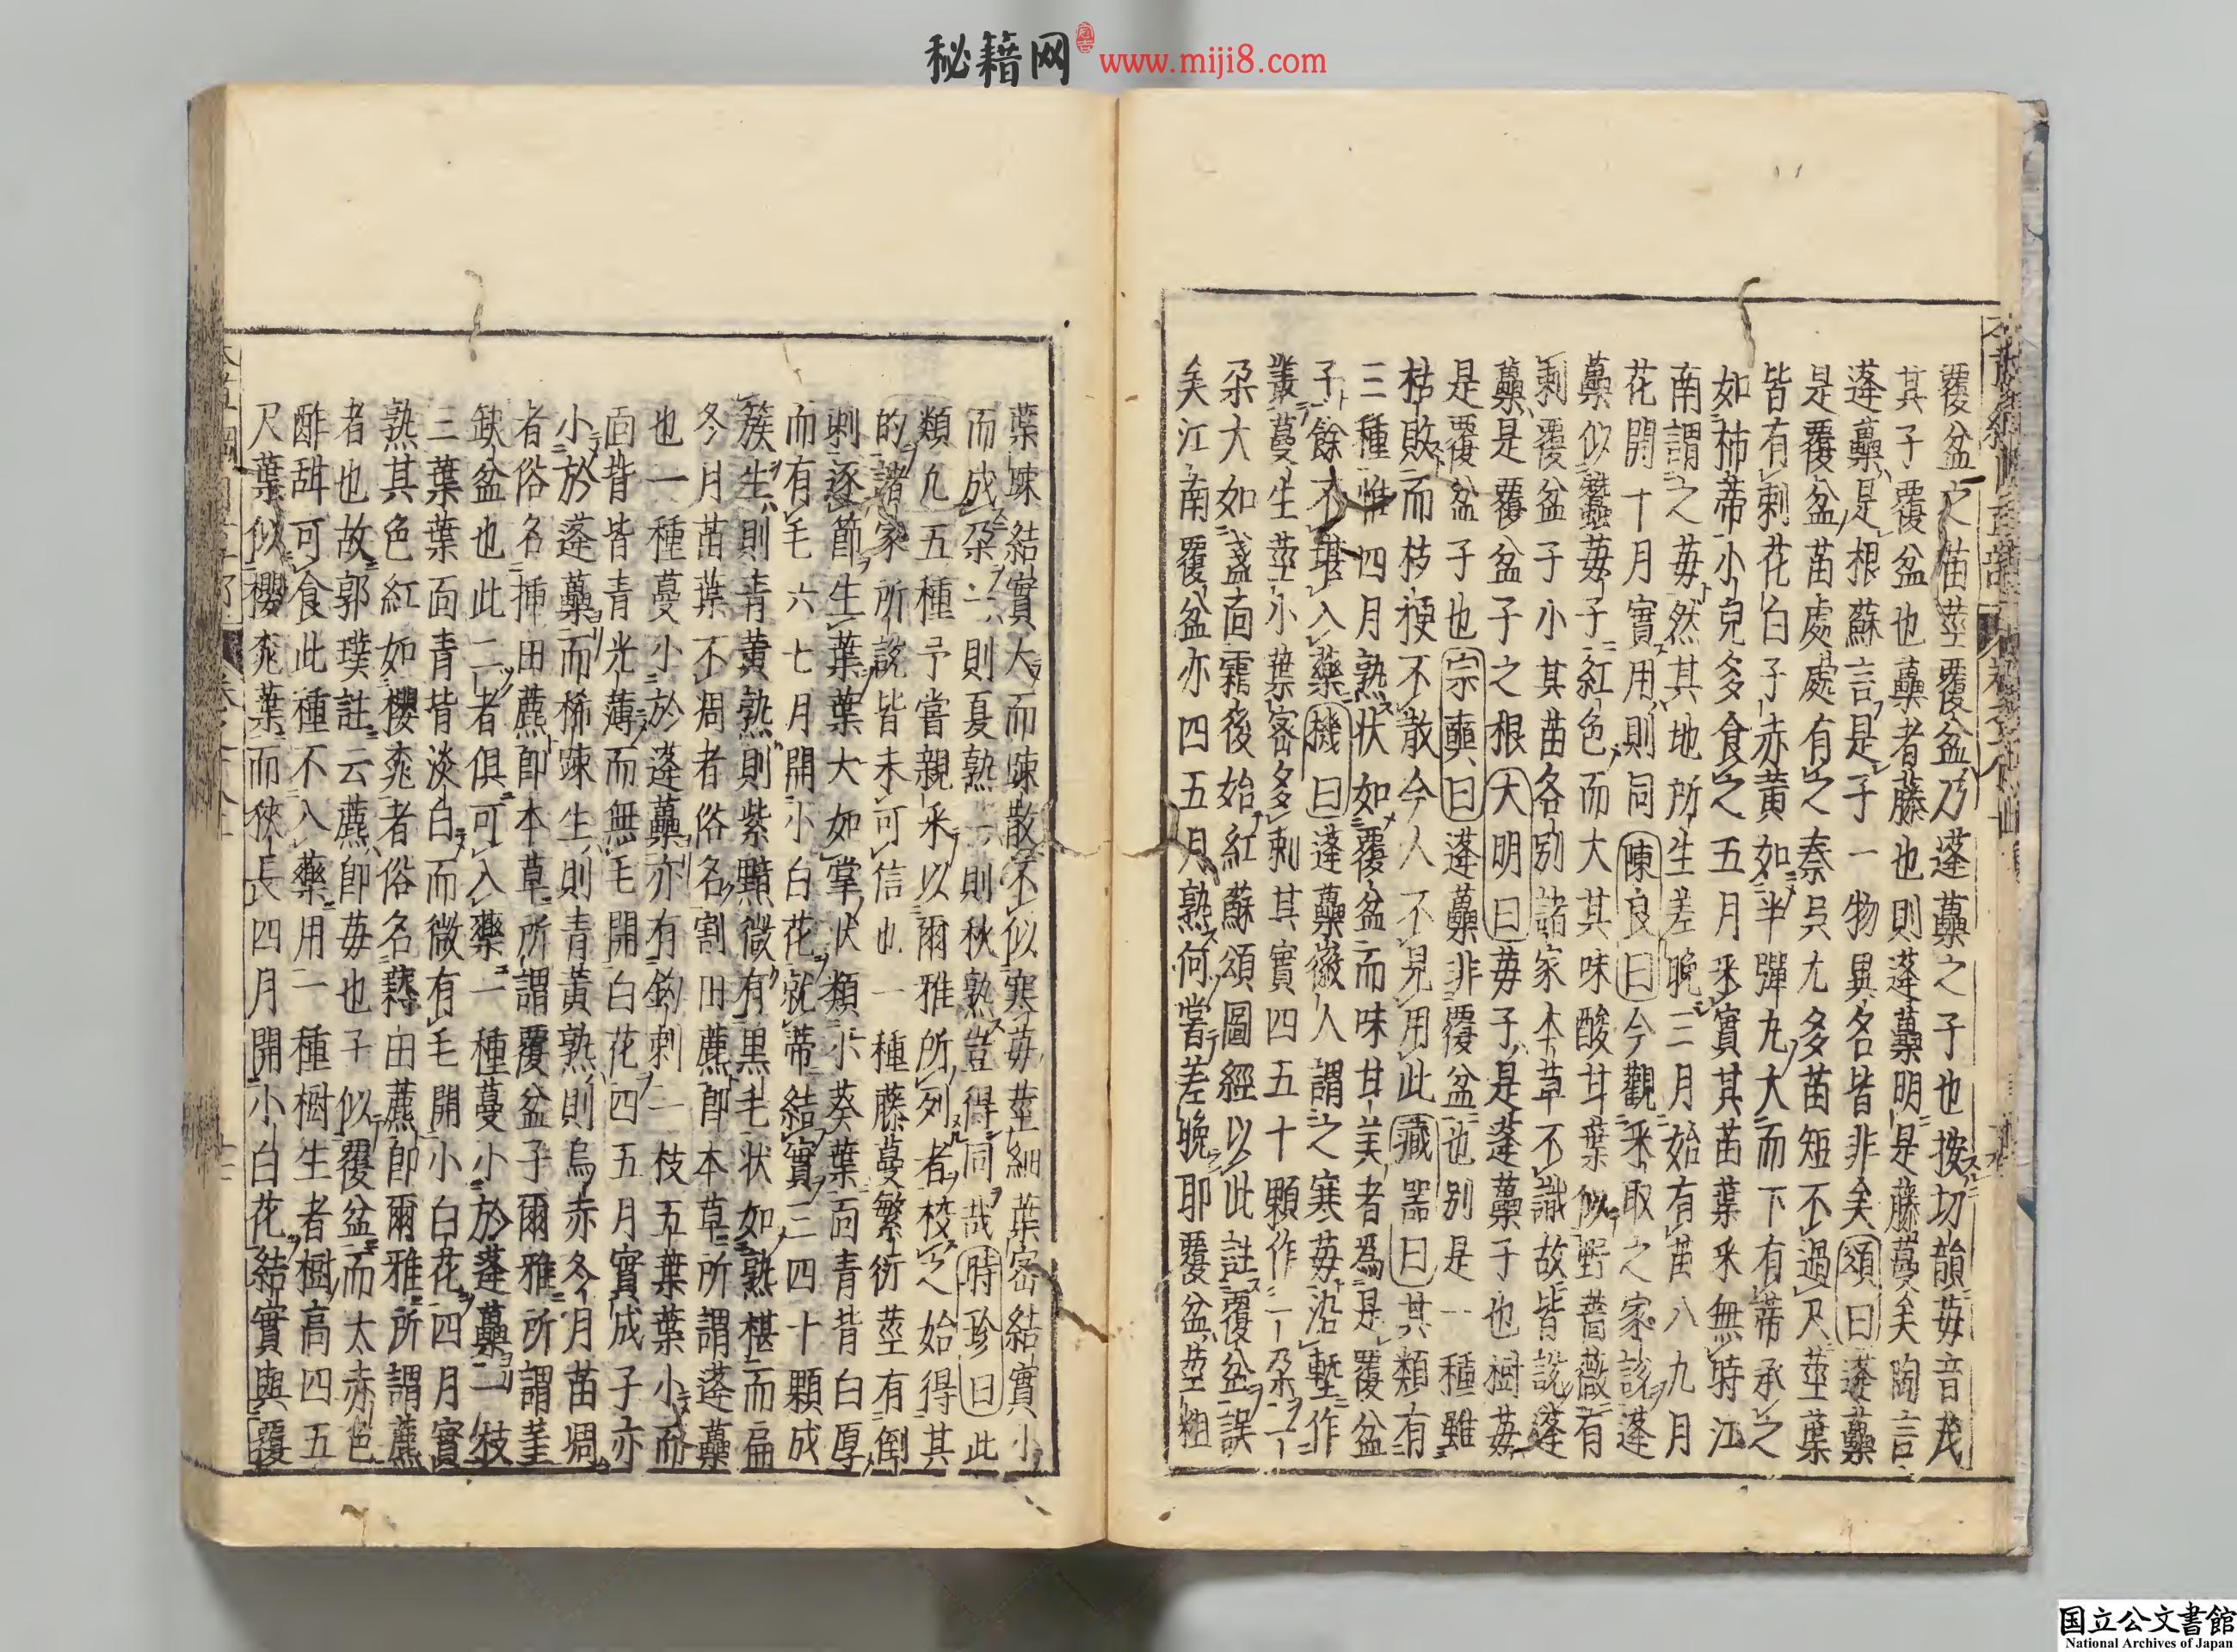 秘籍网 www.miji8.com
覆盆之苗莖覆盆乃蓬蘽之子也按切韻莓音茂
其子覆盆也蘽者藤也則蓬蘽明是藤蔓矣陶言
蓬蘽是根蘇言是子一物異名皆非矣頌曰蓬蘽
是覆盆苗處處有之秦吳尤多苗短不過尺莖葉
皆有刺花白子赤黄如半彈丸大而下有蒂承之
如柿蒂小兒多食之五月采實其苗葉采無時江
南謂之莓然其地所生差晚三月始有苗八九月
花開十月實用則同陳良曰今觀采取之家說蓬
蘽似蠶莓子紅色而大其味酸甘葉似野薔薇有
刺覆盆子小其苗各別諸家本草不識故皆說蓬
蘽是覆盆子之根大明曰莓子是蓬蘽子也樹莓
是覆盆子也宗奭曰蓬蘽非覆盆也別是一種雖
枯敗而枝梗不散今人不見用此藏器曰其類有
三種惟四月熟狀如覆盆而味甘美者為是覆盆
子餘不堪入藥機曰蓬蘽徽人謂之寒莓沿塹作
叢蔓生莖小葉密多刺其實四五十顆作一朵一
朵大如盞面霜後始紅蘇頌圖經以此註覆盆誤
矣江南覆盆亦四五月熟何嘗差晚耶覆盆莖粗
葉疎結實大而疎散不似寒莓莖細葉密結實小
而成朵一則夏熟一則秋熟豈得同哉時珍曰此
類凡五種予嘗親采以爾雅所列者校之始得其
的諸家所說皆未可信也一種藤蔓繁衍莖有倒
刺逐節生葉葉大如掌狀類小葵葉面青背白厚
而有毛六七月開小白花就蒂結實三四十顆成
簇生則青黄熟則紫黯微有黑毛狀如熟椹而扁
冬月苗葉不凋者俗名割田藨即本草所謂蓬蘽
也一種蔓小於蓬蘽亦有鉤刺一枝五葉葉小而
面背皆青光薄而無毛開白花四五月實成子亦
小於蓬蘽而稀疎生則青黄熟則烏赤冬月苗凋
者俗名插田藨即本草所謂覆盆子爾雅所謂堇
缺盆也此二者俱可入藥一種蔓小於蓬蘽一枝
三葉葉面青背淡白而微有毛開小白花四月實
熟其色紅如櫻桃者俗名薅田藨即爾雅所謂藨
者也故郭璞註云藨即莓也子似覆盆而大赤色
酢甜可食此種不入藥用一種樹生者樹高四五
尺葉似櫻桃葉而狹長四月開小白花結實與覆
国立公文書館
National Archives of Japan